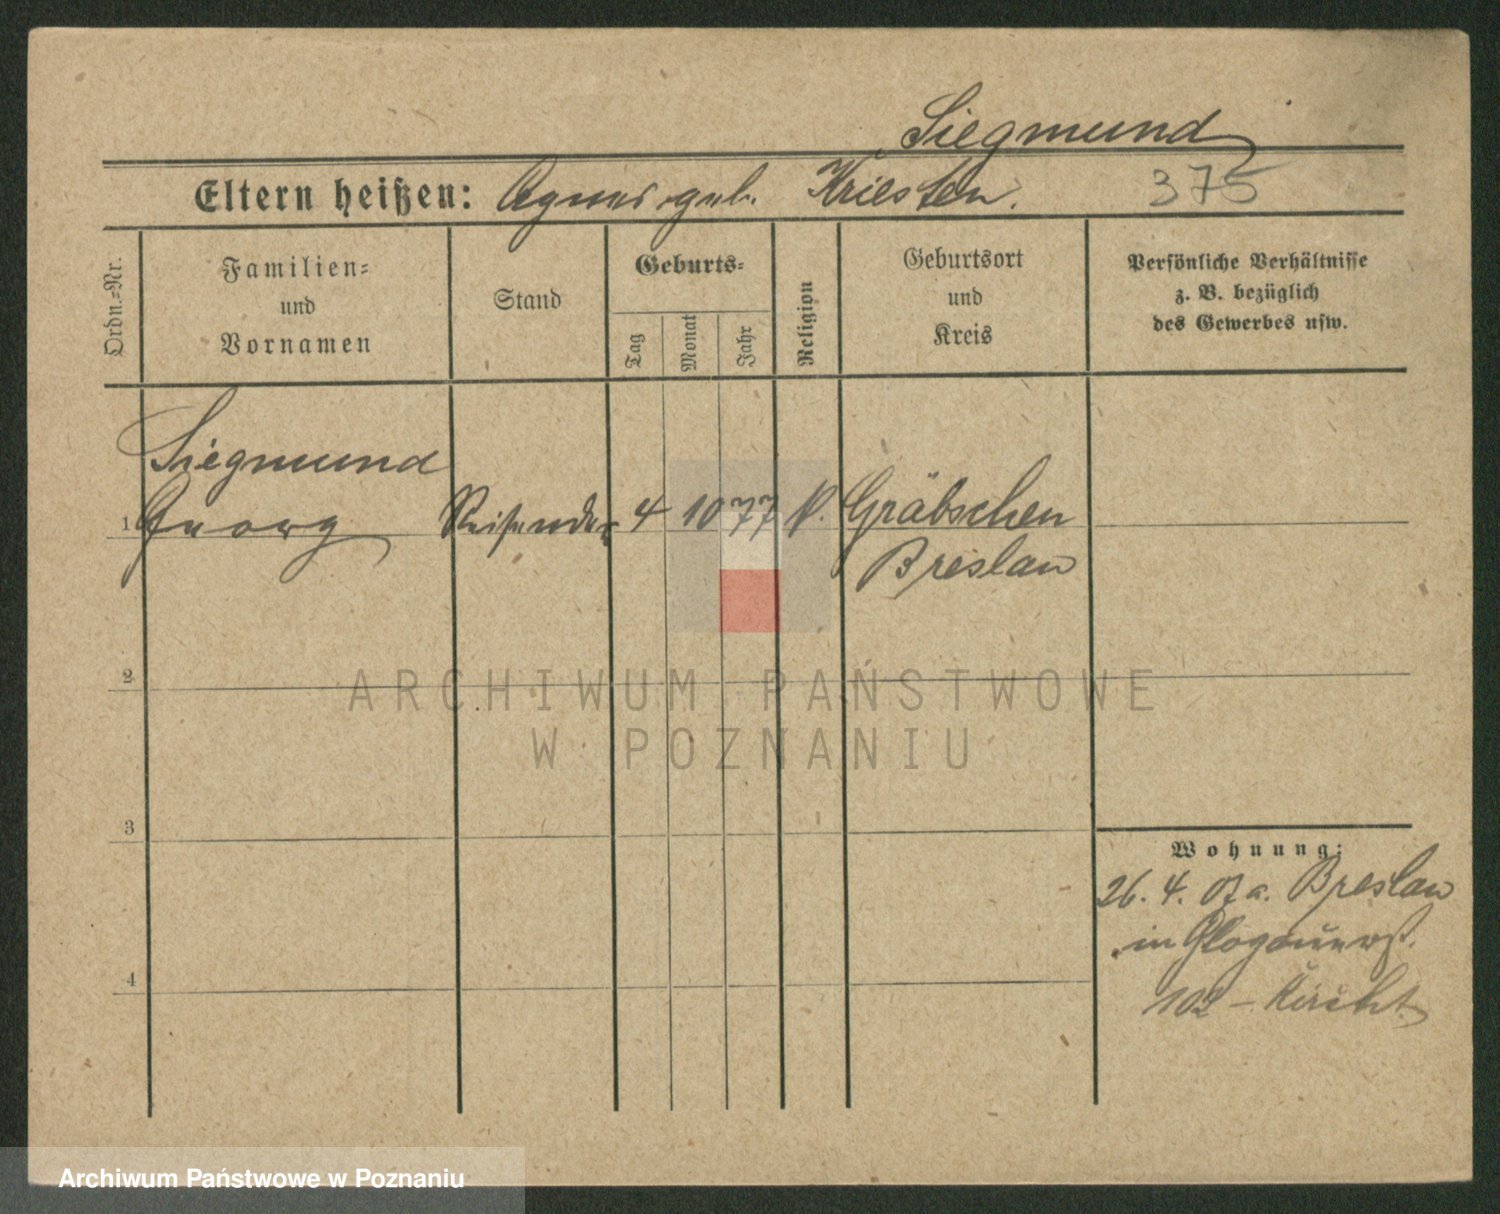 Siegmund
Eltern heißen: Agnes geb. Kriesten.
375
Ordn.-Nr.
Familien-
und
Vornamen
Stand
Geburts-
Tag
Monat
Jahr
Religion
Geburtsort
und
Kreis
Persönliche Verhältnisse
z. B. bezüglich
des Gewerbes usw.
Siegmund
1 Georg Reisender 4 10 77 k. Gräbschen
Breslau
2
ARCHIWUM PAŃSTWOWE
W POZNANIU
3
Wohnung:
26. 4. 07 a. Breslau
in Glogauerst.
102 –
4
Archiwum Państwowe w Poznaniu